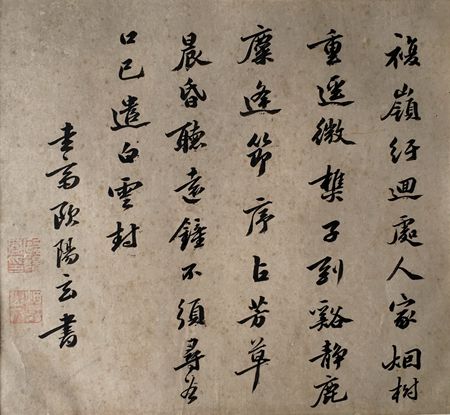 複嶺紆迴處人家烟樹
重逕微樵子到谿静鹿
麋逢節序占芳草
晨昏聽遠鐘不須尋谷
口已遣白雲封
圭齋歐陽玄書